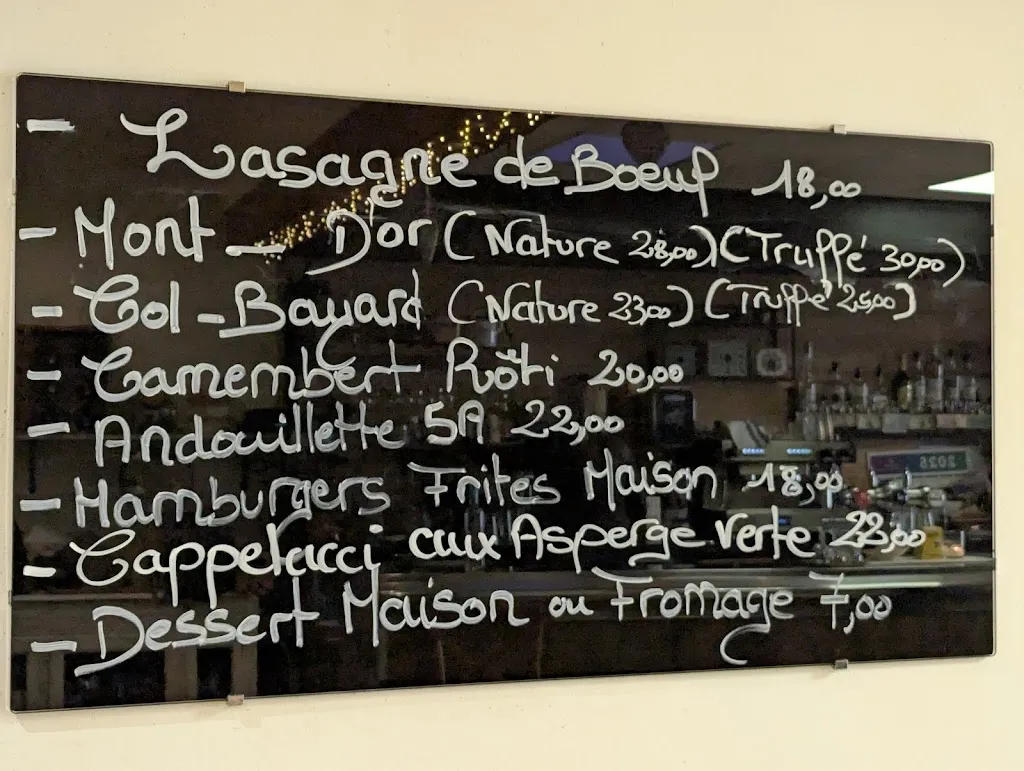 - Lasagne de Boeuf 18,00
- Mont-D'or (Nature 28,00) (Truffé 30,00)
- Col-Bayard (Nature 23,00) (Truffé 25,00)
- Camembert Rôti 20,00
- Andouillette 5A 22,00
- Hamburgers Frites Maison 18,00
- Cappelacci aux Asperge Verte 22,00
- Dessert Maison ou Fromage 7,00
2025